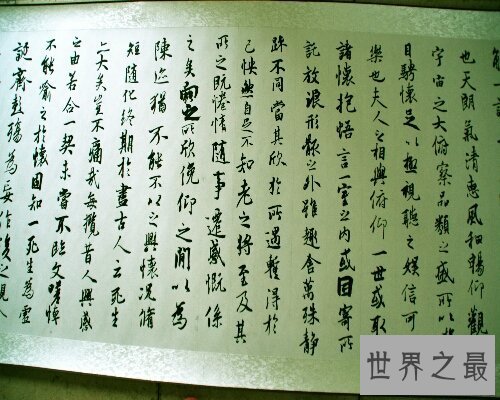 也天朗氣清惠風和暢仰觀
宇宙之大俯察品類之盛所以
目騁懷足以極視聽之娛信可
樂也夫人之相與俯仰一世或取
諸懷抱悟言一室之內或因寄所
託放浪形骸之外雖趣舍萬殊靜
躁不同當其欣於所遇暫得於
己怏然自足不知老之將至及其
所之既惓情隨事遷感慨係
之矣向之所欣俛仰之間以為
陳迹猶不能不以之興懷況脩
短隨化終期於盡古人云死生
亦大矣豈不痛哉每攬昔人興感
之由若合一契未嘗不臨文嗟悼
不能喻之於懷固知一死生為虛
誕齊彭殤為妄作後之視
世界之最